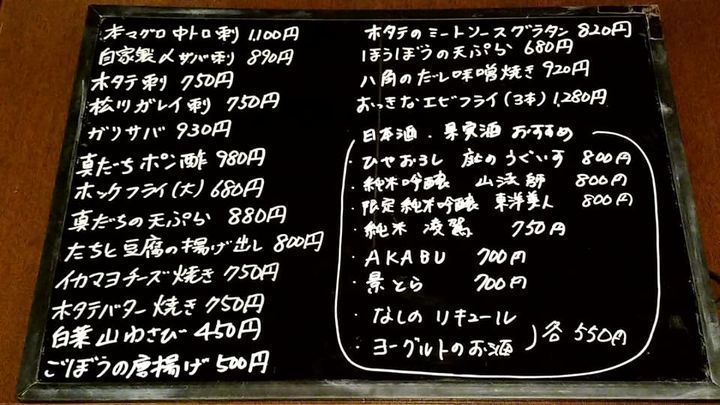 本マグロ中トロ刺 1,100円
自家製〆サバ刺 890円
ホタテ刺 750円
松川ガレイ刺 750円
ガリサバ 930円
真だちポン酢 980円
ホッケフライ(大) 680円
真だちの天ぷら 880円
たちと豆腐の揚げ出し 800円
イカマヨチーズ焼き 750円
ホタテバター焼き 750円
白菜山わさび 450円
ごぼうの唐揚げ 500円
ホタテのミートソースグラタン 820円
ほうぼうの天ぷら 680円
八角のだし味噌焼き 920円
おっきなエビフライ(3本) 1,280円
日本酒・果実酒 おすすめ
・ひやおろし 庭のうぐいす 800円
・純米吟醸 山法師 800円
・限定純米吟醸 東洋美人 800円
・純米 凌駕 750円
・AKABU 700円
・景とら 700円
・なしのリキュール
・ヨーグルトのお酒 ) 各 550円